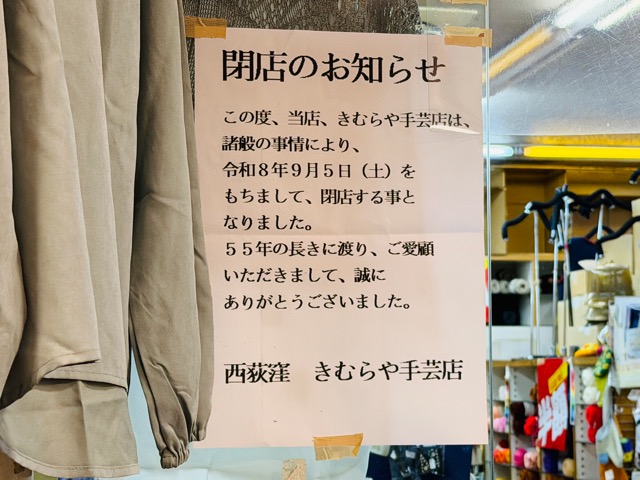 閉店のお知らせ
この度、当店、きむらや手芸店は、
諸般の事情により、
令和８年９月５日（土）を
もちまして、閉店する事と
なりました。
５５年の長きに渡り、ご愛顧
いただきまして、誠に
ありがとうございました。
西荻窪　きむらや手芸店